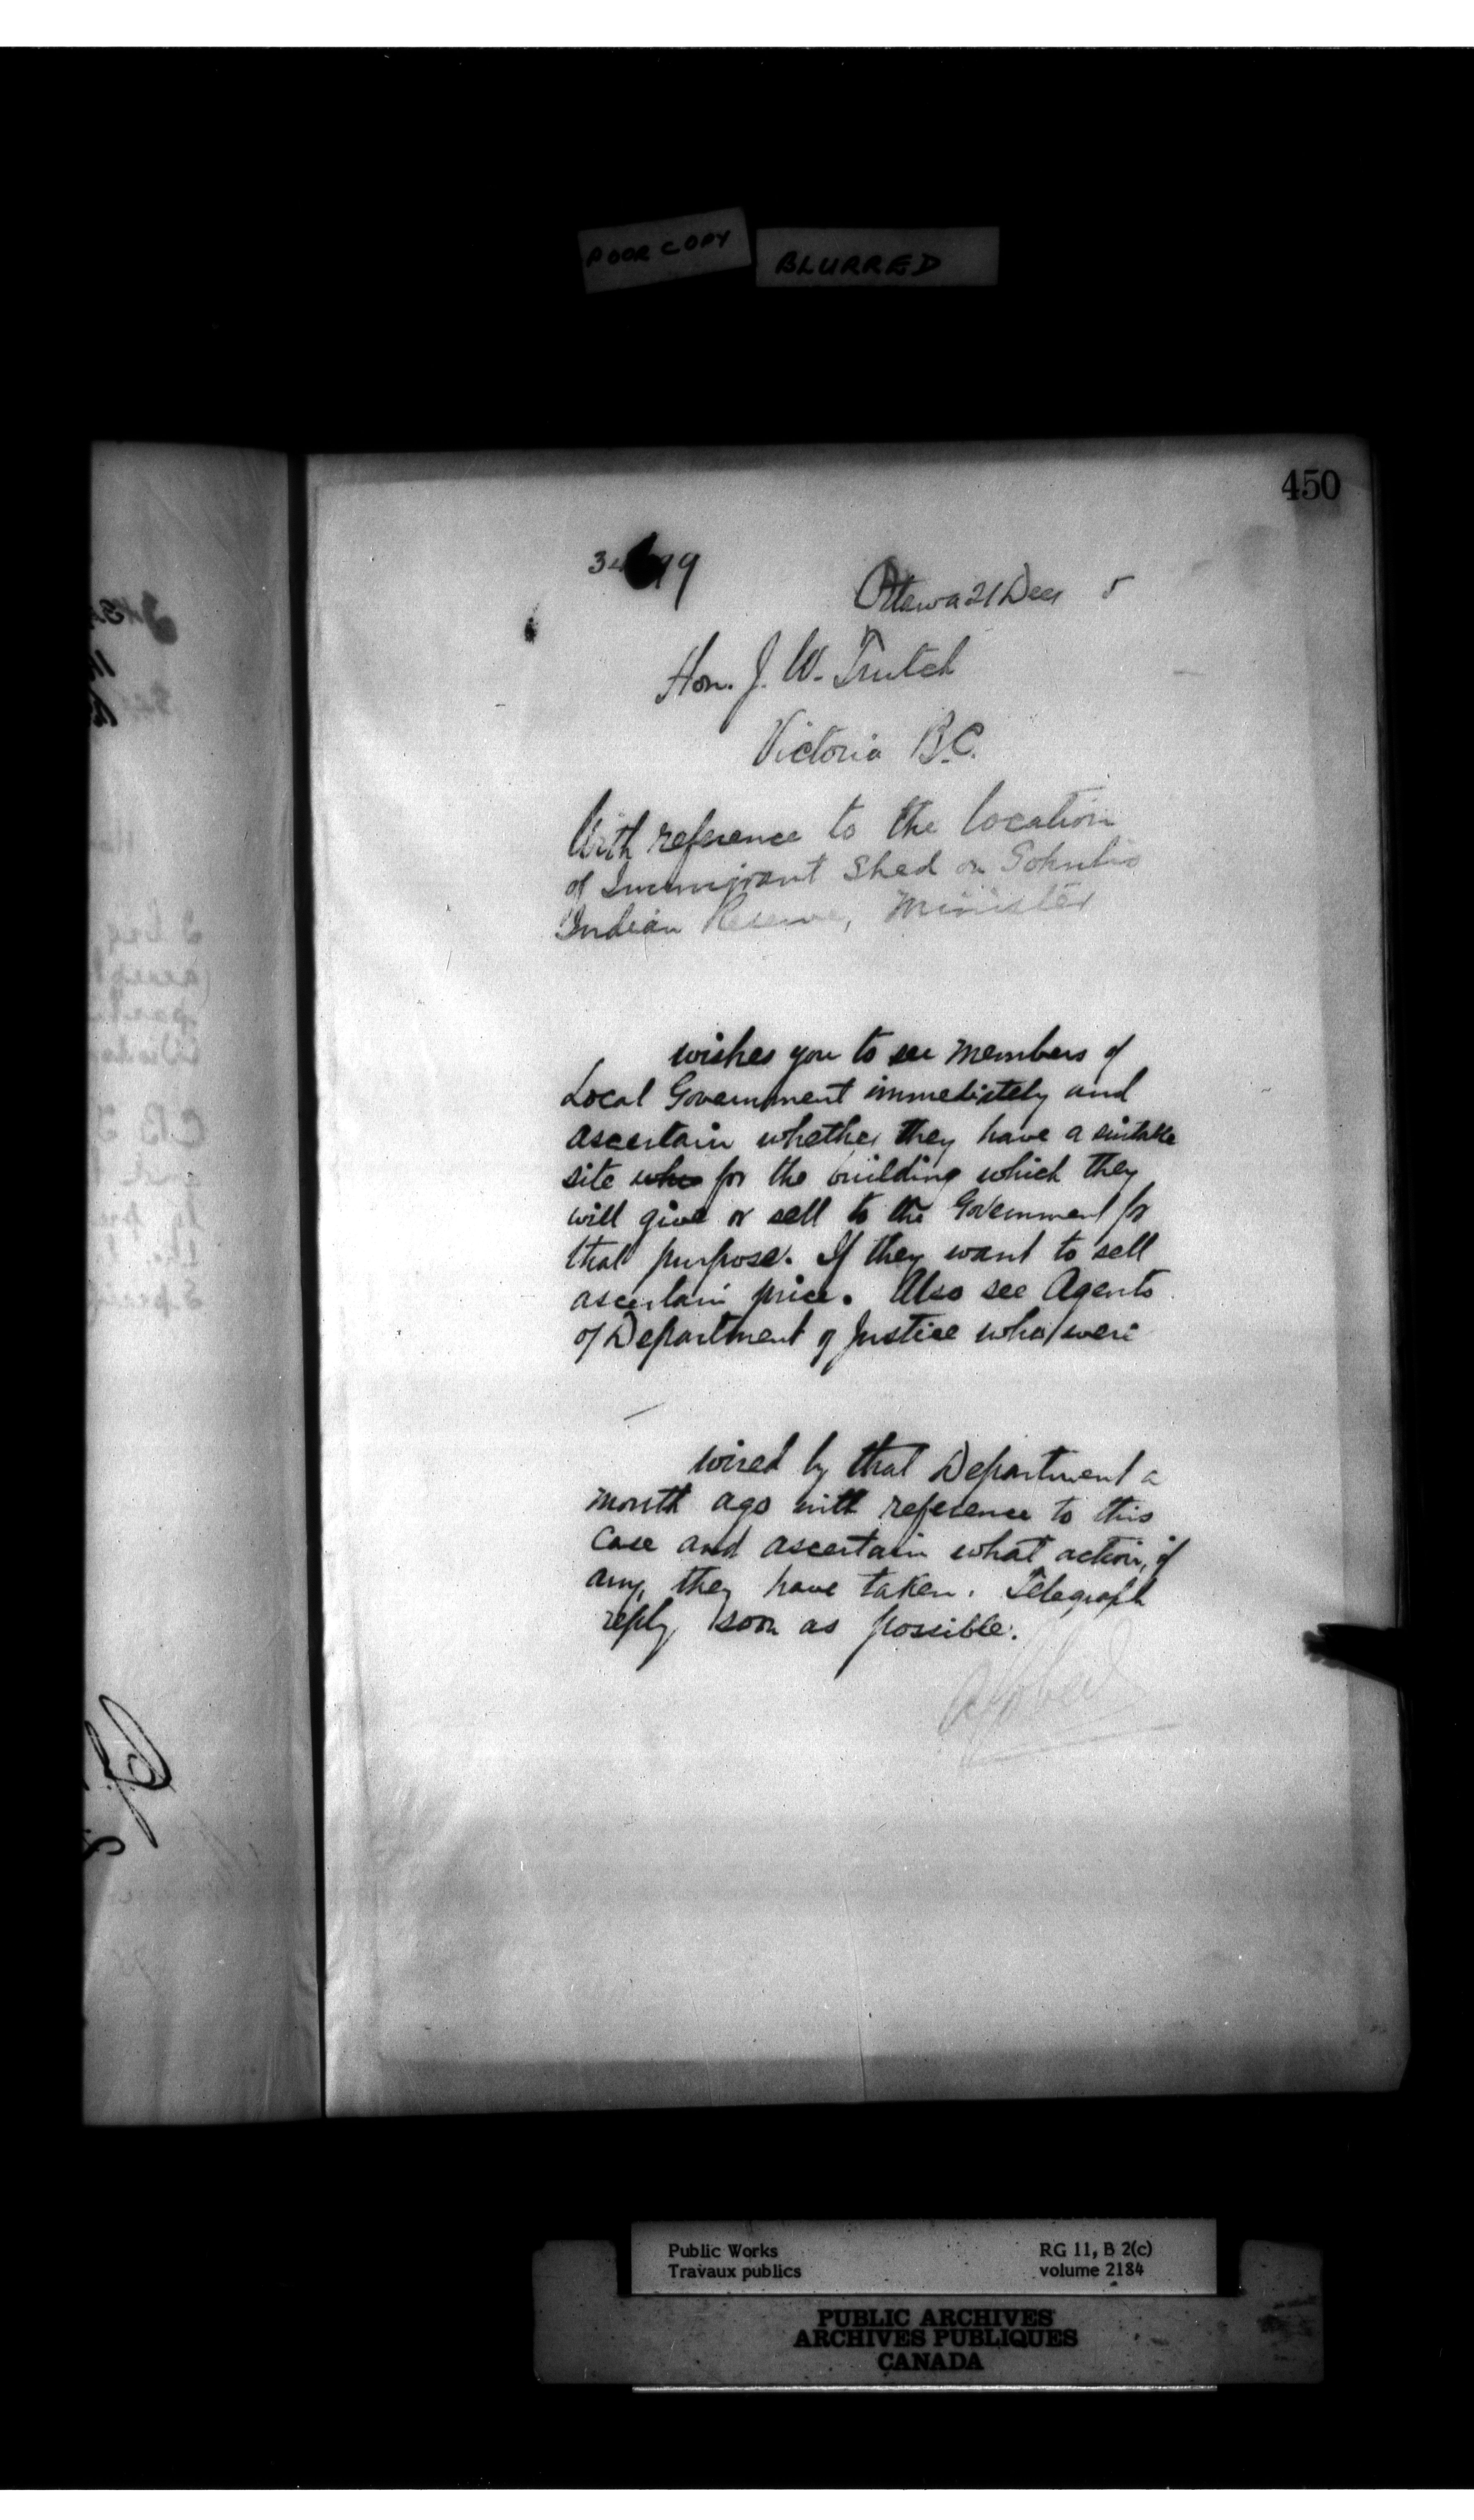 POOR COPY
BLURRED
450
Ottawa 21 Decr 5
Hon. J. W. Trutch
Victoria B.C.
With reference to the location
of Immigrant Shed on
Indian Reserve, Minister
wishes you to see members of
Local Government immediately and
ascertain whether they have a suitable
site who for the building which they
will give or sell to the Government for
that purpose. If they want to sell
ascertain price. Also see Agents
of Department of Justice who were
wired by that Department a
month ago with reference to this
case and ascertain what action, if
any, they have taken. Telegraph
reply soon as possible.
Public Works
Travaux publics
RG 11, B 2(c)
volume 2184
PUBLIC ARCHIVES
ARCHIVES PUBLIQUES
CANADA